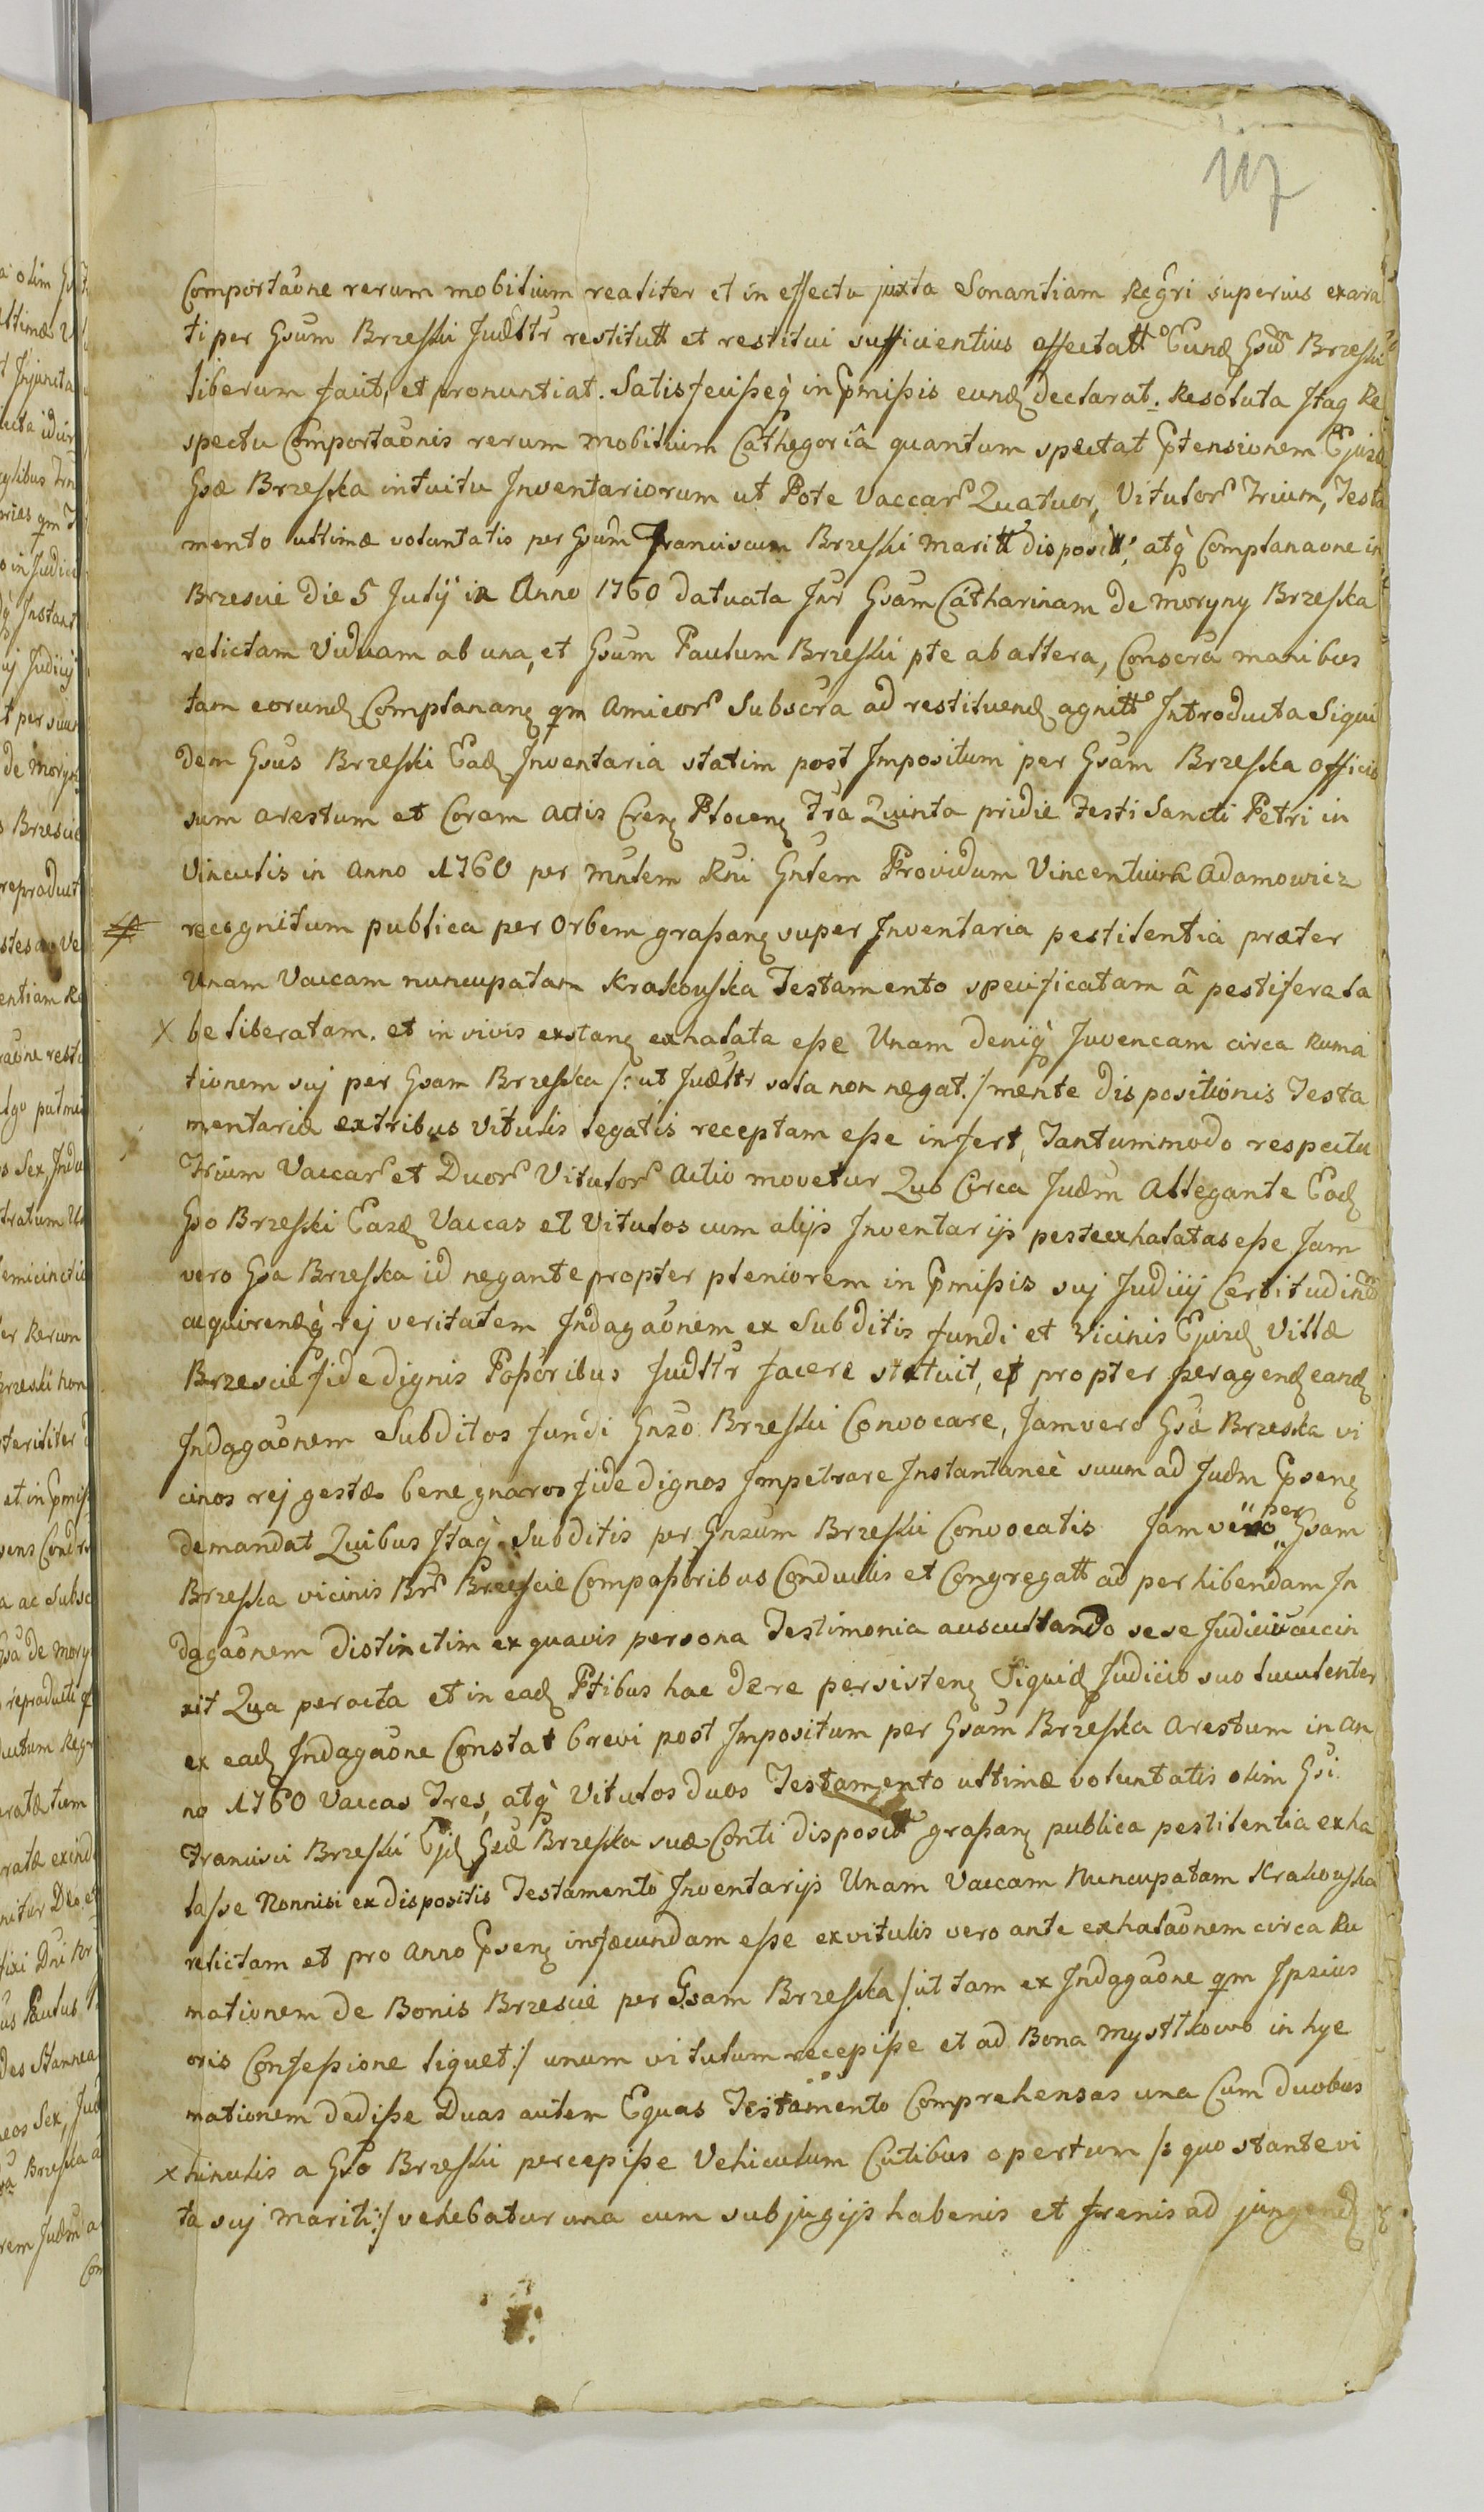 117
Comportaōne rerum mobilium realiter et in effectu juxta Sonantiam Regri superius exara
ti per Gsum Brzeski Judłtr restitutt et restitui sufficientius affectatt Eund Gsum Brzeski
liberum facit, et pronuntiat. Satisfecißeq̀ in Pmißis eund declarat. Resoluta Itaq Re
spectu Comportaōnis rerum Mobilium Cathegoriâ quantum spectat Ptensionem Ejusd
Gsæ Brzeska intuitu Inventariorum ut Pote Vaccar Quatuor, Vitulor Trium, Testa
mento ultimæ voluntatis per Gsum Franciscum Brzeski Maritt disposit, atq̀ Complanaōne in
Brzescie Die 5 Julÿ in Anno 1760 datuata Intr Gsam Catharinam de Moryny Brzeska
relictam Viduam ab una, et Gsum Paulum Brzeski pte ab altera, Conscra manibus
tam eorund Complanan qm Amicor Subscra ad restituend agnitt Introducta Siqui
dem Gsus Brzeski Ead Inventaria statim post Impositum per Gsam Brzeska officio
sum arestum et Coram Actis Cren Plocen Fra Quinta pridie Festi Sancti Petri in
Vinculis in Anno 1760 per Mntem Rni Gntem Providum Vincentium Adamowicz
recognitum publica per Orbem graßan super Inventaria pestilentia præter
Unam Vaccam nuncupatam Krakowska Testamento specificatam â pestifera la
X be liberatam. et in vivis exstan exhalata eße Unam deniq̀ Juvencam circa Ruma
tionem suj per Gsam Brzeska /: ut Judłtr sola non negat :/ mente dispositionis Testa
mentariæ ex tribus Vitulis legatis receptam eße infert, Tantummodo respectu
Trium Vaccar et Duor Vitulor Actio movetur Quo Circa Judm Allegante Eod
Gso Brzeski Easd Vaccas et Vitulos cum alijs Inventarijs peste exhalatas eße Jam
vero Gsa Brzeska id negante propter pleniorem in Pmißis suj Judicij Certitudinem
acquirendq̀ rej veritatem Indagaōnem ex Subditis fundi et Vicinis Ejusd Villæ
Brzescie fide dignis Poßoribus Judłtr facere statuit, et propter peragend eand
Indagaōnem Subditos fundi Gnso Brzeski Convocare, Jam vero Gsæ Brzeska vi
cinos rej gestæ bene gnaros fide dignos Impetrare Instantaneè suum ad Judm Psens
demandat Quibus Itaq̀ Subditis per Gnsum Brzeski Convocatis Jam vero per Gsam
Brzeska vicinis Br Brzescie Compoßoribus Conductis et Congregatt ad perhibendam In
dagaōnem distinctim ex quavis persona Testimonia auscultando sese Judicium accin
xit Qua peracta et in ead Ptibus hac de re persisten Siquid Judicio suo luculenter
ex ead Indagaōne Constat brevi post Impositum per Gsam Brzeska Arestum in An
no 1760 Vaccas Tres, atq̀ Vitulos duos Testamento ultimæ voluntatis olim Gsi
Francisci Brzeski Ejd Gsæ Brzeska suæ Conti disposit graßan publica pestilentia exha
laſse Nonnisi ex dispositis Testamento Inventarijs Unam Vaccam Nuncupatam Krakowska
relictam et pro Anno Psen infæcundam eße ex vitulis vero ante exhalaōnem circa Ru
mationem de Bonis Brzescie per Gsam Brzeska /: ut tam ex Indagaōne qm Ipsius
oris Confeßione liquet :/ unum vitulum recepiße et ad Bona Mysttkowo in hye
mationem dediße Duas autem Equas Testamento Comprehensas una Cum duobus
X hinulis a Gso Brzeski percepiße Vehiculum Cutibus opertum /: quo stante vi
ta suj Mariti :/ vehebatur una cum subjugijs habenis et frenis ad jungend